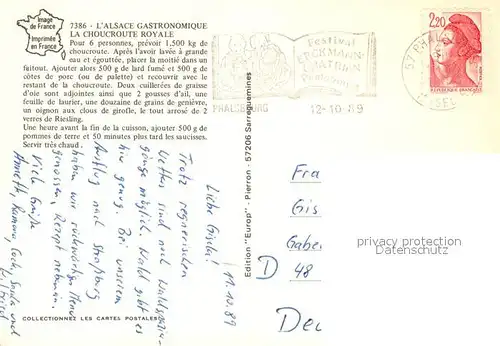 Image
de France
Imprimée
en France
7386 - L'ALSACE GASTRONOMIQUE
LA CHOUCROUTE ROYALE
Pour 6 personnes, prévoir 1,500 kg de
choucroute. Après l'avoir lavée à grande
eau et égouttée, placez la moitié dans un
faitout. Ajouter alors 500 g de lard fumé et 500 g de
côtes de porc (ou de palette) et recouvrir avec le
restant de la choucroute. Deux cuillerées de graisse
d'oie sont adjointes ainsi que 2 gousses d'ail, une
feuille de laurier, une douzaine de grains de genièvre,
un oignon aux clous de girofle, le tout arrosé de 2
verres de Riesling.
Une heure avant la fin de la cuisson, ajouter 500 g de
pommes de terre et 50 minutes plus tard les saucisses.
Servir très chaud.
Festival
ERCKMANN-
CHATRIAN
PHALSBOURG
12-10-89
57 PHAL
MOSELLE
2,20
RÉPUBLIQUE FRANÇAISE
11.10.89
Liebe Gisela!
Trotz regnerischen
Wetter sind noch Waldspazier-
gänge möglich, Wald gibt es
hier genug. Bei unserem
Ausflug nach Straßburg
haben wir rückwärtiges Menü
genossen, Rezept nebenan.
Viele Grüße
Annette, Ramona,
Edition "Europ" - Pierron - 57206 Sarreguemines
Fra
Gis
Gaber
D 48
Deu
phototheque PRO
© delcampe.net
COLLECTIONNEZ LES CARTES POSTALES